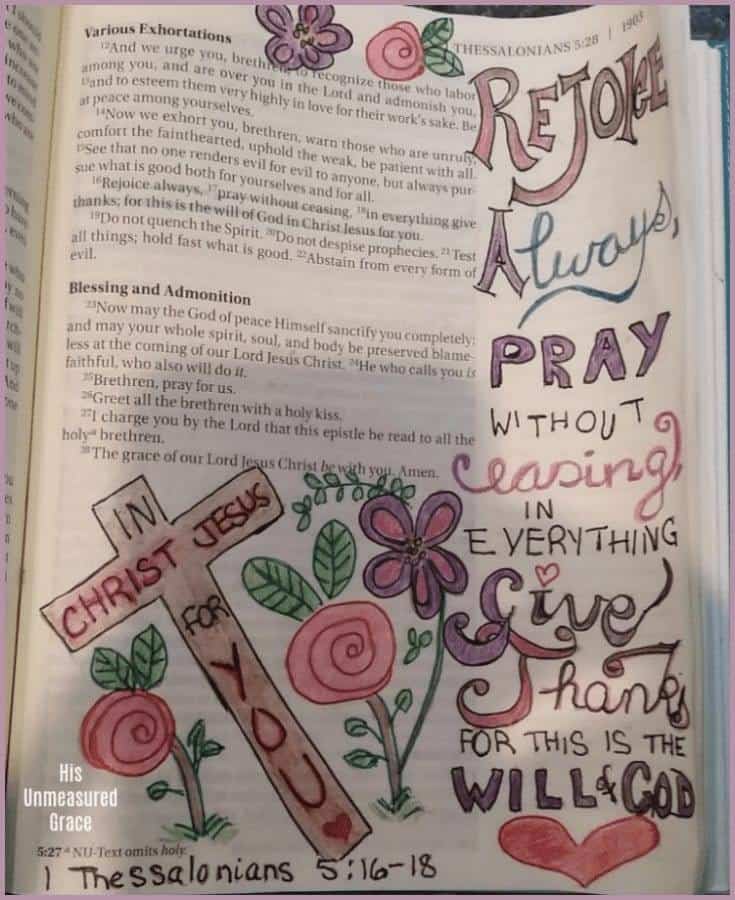 THESSALONIANS 5:28 | 1903
Various Exhortations
12And we urge you, brethren, to recognize those who labor
among you, and are over you in the Lord and admonish you,
13and to esteem them very highly in love for their work's sake. Be
at peace among yourselves.
14Now we exhort you, brethren, warn those who are unruly,
comfort the fainthearted, uphold the weak, be patient with all.
15See that no one renders evil for evil to anyone, but always pur-
sue what is good both for yourselves and for all.
16Rejoice always, 17pray without ceasing, 18in everything give
thanks; for this is the will of God in Christ Jesus for you.
19Do not quench the Spirit. 20Do not despise prophecies. 21Test
all things; hold fast what is good. 22Abstain from every form of
evil.
Blessing and Admonition
23Now may the God of peace Himself sanctify you completely;
and may your whole spirit, soul, and body be preserved blame-
less at the coming of our Lord Jesus Christ. 24He who calls you is
faithful, who also will do it.
25Brethren, pray for us.
26Greet all the brethren with a holy kiss.
27I charge you by the Lord that this epistle be read to all the
holya brethren.
28The grace of our Lord Jesus Christ be with you. Amen.
REJOICE
Always,
PRAY
WITHOUT
Ceasing,
IN
EVERYTHING
Give
Thanks
FOR THIS IS THE
WILL of GOD
IN
CHRIST JESUS
FOR
YOU
His
Unmeasured
Grace
5:27 a NU-Text omits holy.
1 Thessalonians 5:16-18